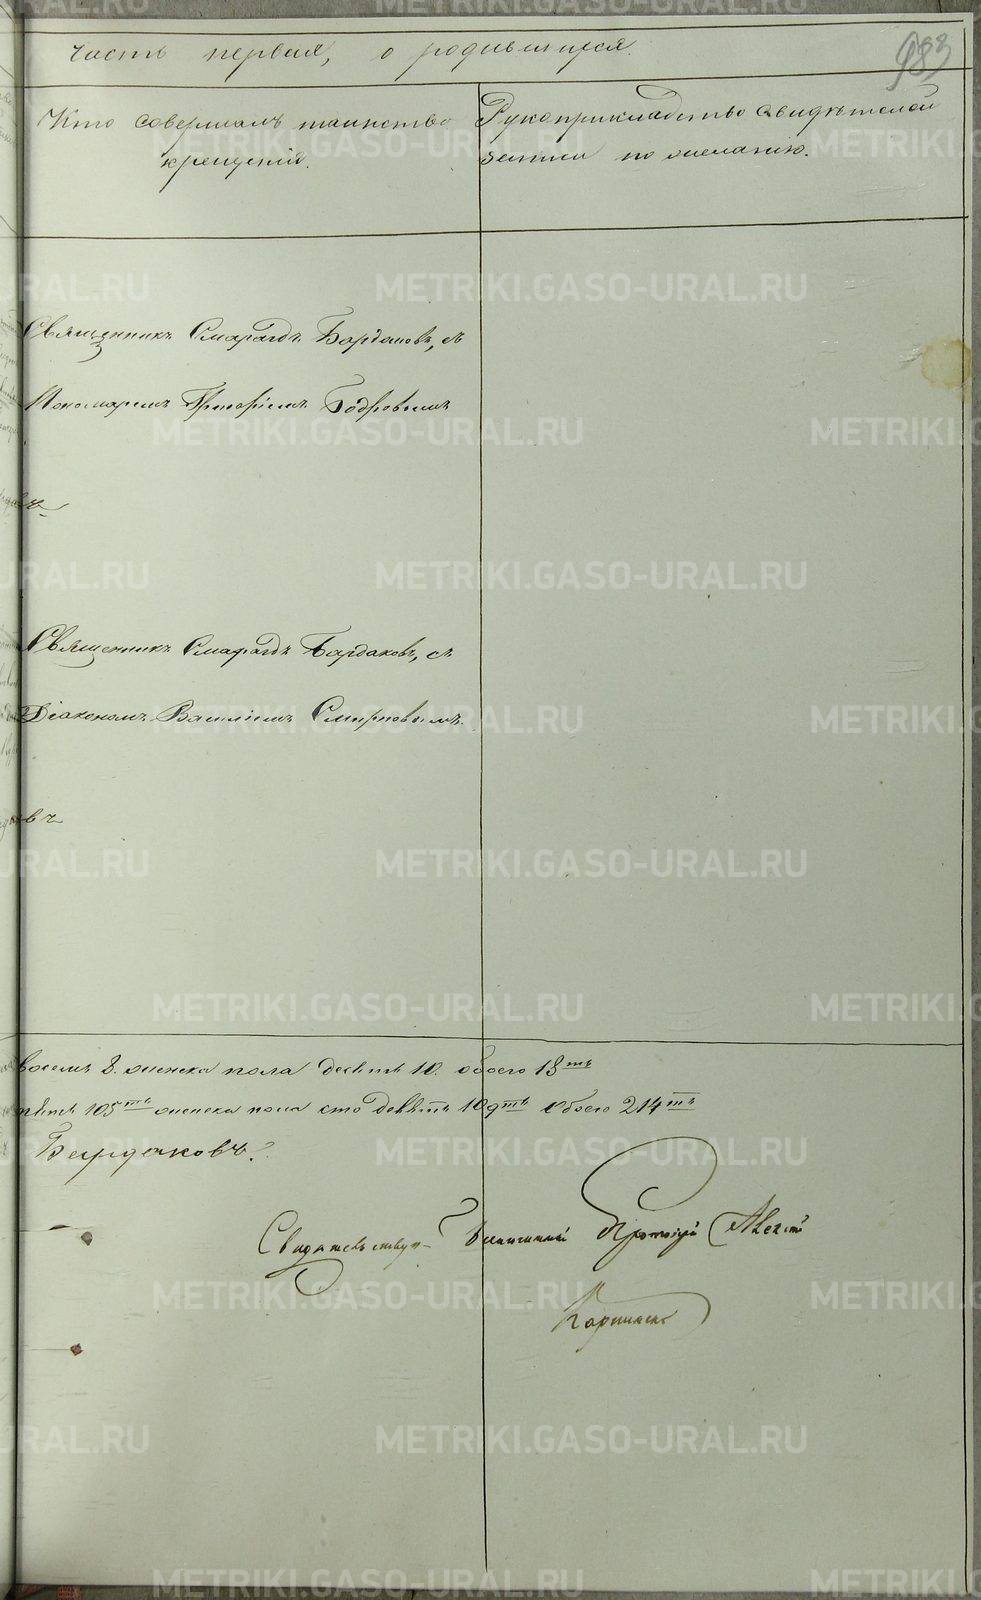 часть первая, о родившихся.
983
Кто совершалъ таинство
крещенія.
Рукоприкладство свидѣтелей
записи по желанію.
Священникъ Смарагдъ Бардаковъ, съ
Пономаремъ Григоріемъ Бобровымъ
въ
Священникъ Смарагдъ Бардаковъ, съ
Діакономъ Василіемъ Смирновымъ.
въ
восемь 8. женска пола десять 10. обоего 18ть
пять 105ть женска пола сто девять 109ть обоего 214ть
Бардаковъ.
Свидѣтельству Протоіерей
METRIKI.GASO-URAL.RU